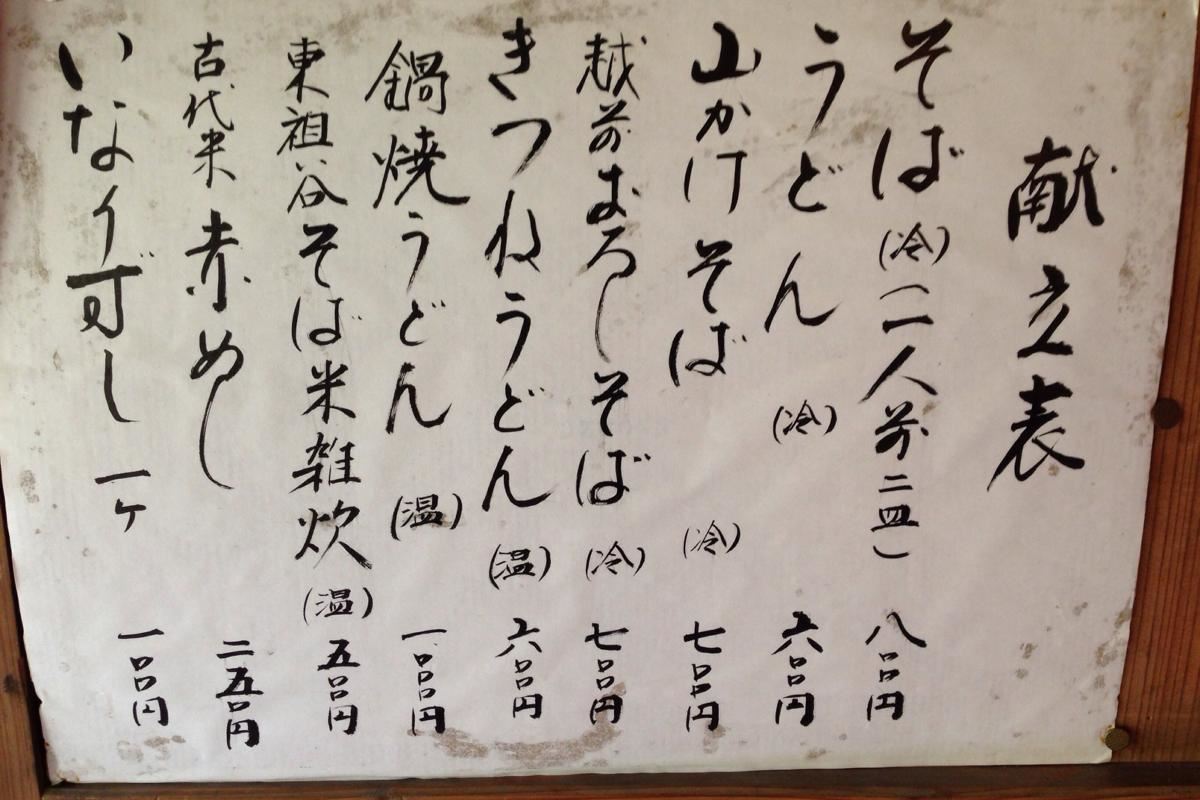 献立表
そば(冷)(二人前二皿) 八〇〇円
うどん(冷) 六〇〇円
山かけそば(冷) 七〇〇円
越前おろしそば(冷) 七〇〇円
きつねうどん(温) 六〇〇円
鍋焼うどん(温) 一〇〇〇円
東祖谷そば米雑炊(温) 五〇〇円
古代米赤めし 二五〇円
いなり寿し 一ヶ 一〇〇円